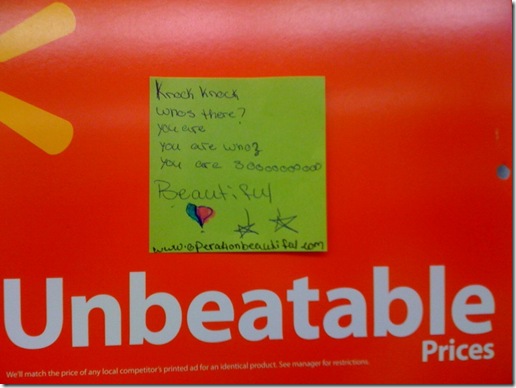 Knock Knock
whos there?
you are
you are who?
you are soooooooooo
Beautiful
www.operationbeautiful.com
Unbeatable
Prices
We'll match the price of any local competitor's printed ad for an identical product. See manager for restrictions.